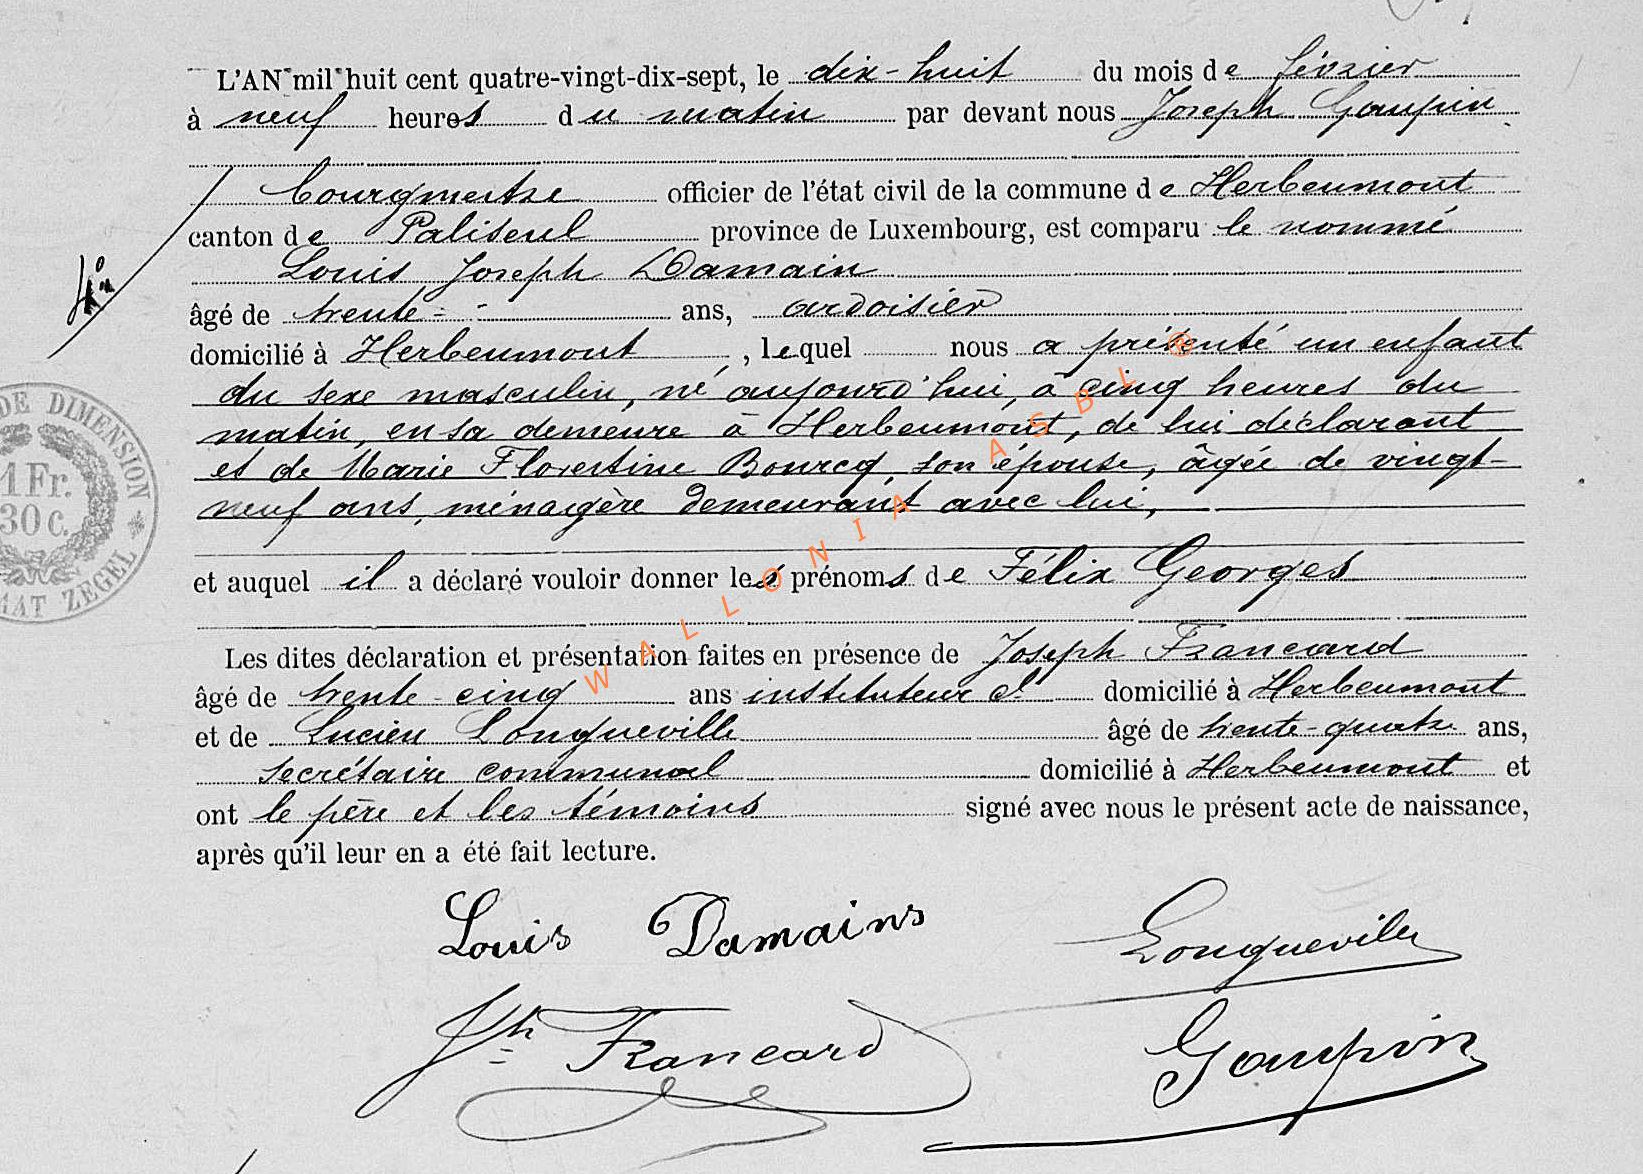 L'AN mil huit cent quatre-vingt-dix-sept, le dix-huit du mois de février
à neuf heures du matin par devant nous Joseph Goupin
bourgmestre officier de l'état civil de la commune de Herbeumont
canton de Paliseul province de Luxembourg, est comparu le nommé
Louis Joseph Damain
âgé de trente ans, ardoisier
domicilié à Herbeumont, lequel nous a présenté un enfant
du sexe masculin, né aujourd'hui, à cinq heures du
matin, en sa demeure à Herbeumont, de lui déclarant
et de Marie Florentine Bourcq, son épouse, âgée de vingt-
neuf ans, ménagère demeurant avec lui,
et auquel il a déclaré vouloir donner les prénoms de Félix Georges
Les dites déclaration et présentation faites en présence de Joseph Francard
âgé de trente-cinq ans instituteur et domicilié à Herbeumont
et de Lucien Longueville âgé de trente-quatre ans,
secrétaire communal domicilié à Herbeumont et
ont le père et les témoins signé avec nous le présent acte de naissance,
après qu'il leur en a été fait lecture.
Louis Damains Longueville
Jh Francard Goupin
DE DIMENSION
1 Fr.
30 c.
MAT ZEGEL
WALLONIA ASBL ®